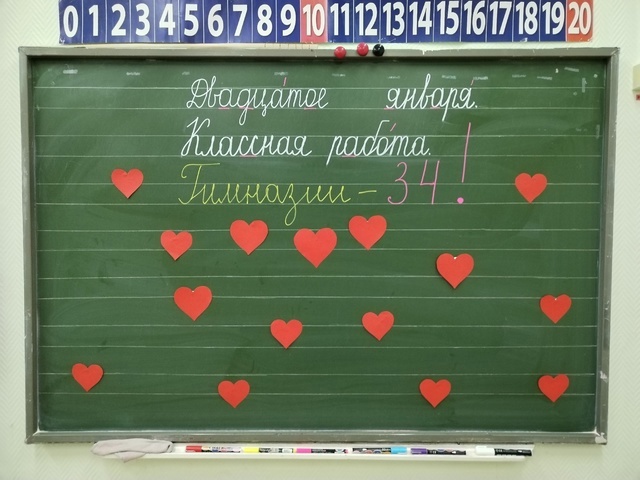 0 1 2 3 4 5 6 7 8 9 10 11 12 13 14 15 16 17 18 19 20
Двадца́тое января́.
Классная рабо́та.
Гимназии – 34!